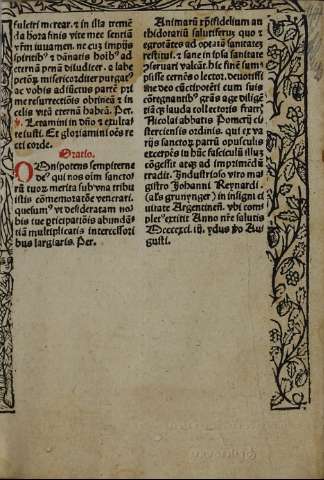 fulciri merear. ⁊ in illa tremē
da hora finis vite mee sentiā
ad
eternā penā
ac vobis adiūctus partē pri
me resurrectiōis obtineā ⁊ in
celis vitā eternā habeā. Per.
Letamini in dn̄o ⁊ exulta
te iusti. Et gloriamini oēs re
cti corde.
Oratio.
Omnipotens sempiterne
de⁹ qui nos oīm sanctor
merita sub vna tribu
isti cōmemoratōe venerari.
quesum⁹ vt desideratam no
bis tue ꝓpiciatiōis abundā
tiam multiplicatis intercessori
bus largiaris. Per.
Animarū xp̄ifidelium an
thidotariū salutiferuz quo ⁊
egrotātes ad optatā sanitatez
restitui. ⁊ sane in ipsa sanitate
ꝯseruari valeāt. hic finē sum
psisse cernēs o lector. deuotissi
me deo cūctipotēti cum suis
cōregnantib⁹ grās age diligē
collectoris fratr
Nicolai abbatis Pomerij ci
sterciensis ordinis. qui ex va
rijs sanctor patrū opusculis
excerptā in hūc fasciculū
cōgessit atq ad imprimēdū
tradit. Industrioso viro ma
gistro Johanni Reynardi.
(als grunynger) in insigni ci
uitate Argentineñ. vbi com
plet⁹ extitit Anno nr̄e salutis
ydus ꝓo Au
gusti.